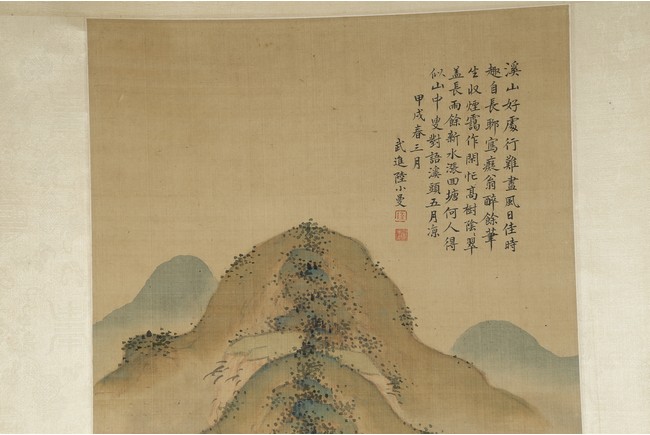 溪山好處行難盡風日佳時
趣自長聊寫癡翁醉餘筆
生收煙靄作閒忙高樹陰〻翠
蓋長雨餘新水漲囬塘何人得
似山中叟對語溪頭五月凉
甲戌春三月
武進陸小曼